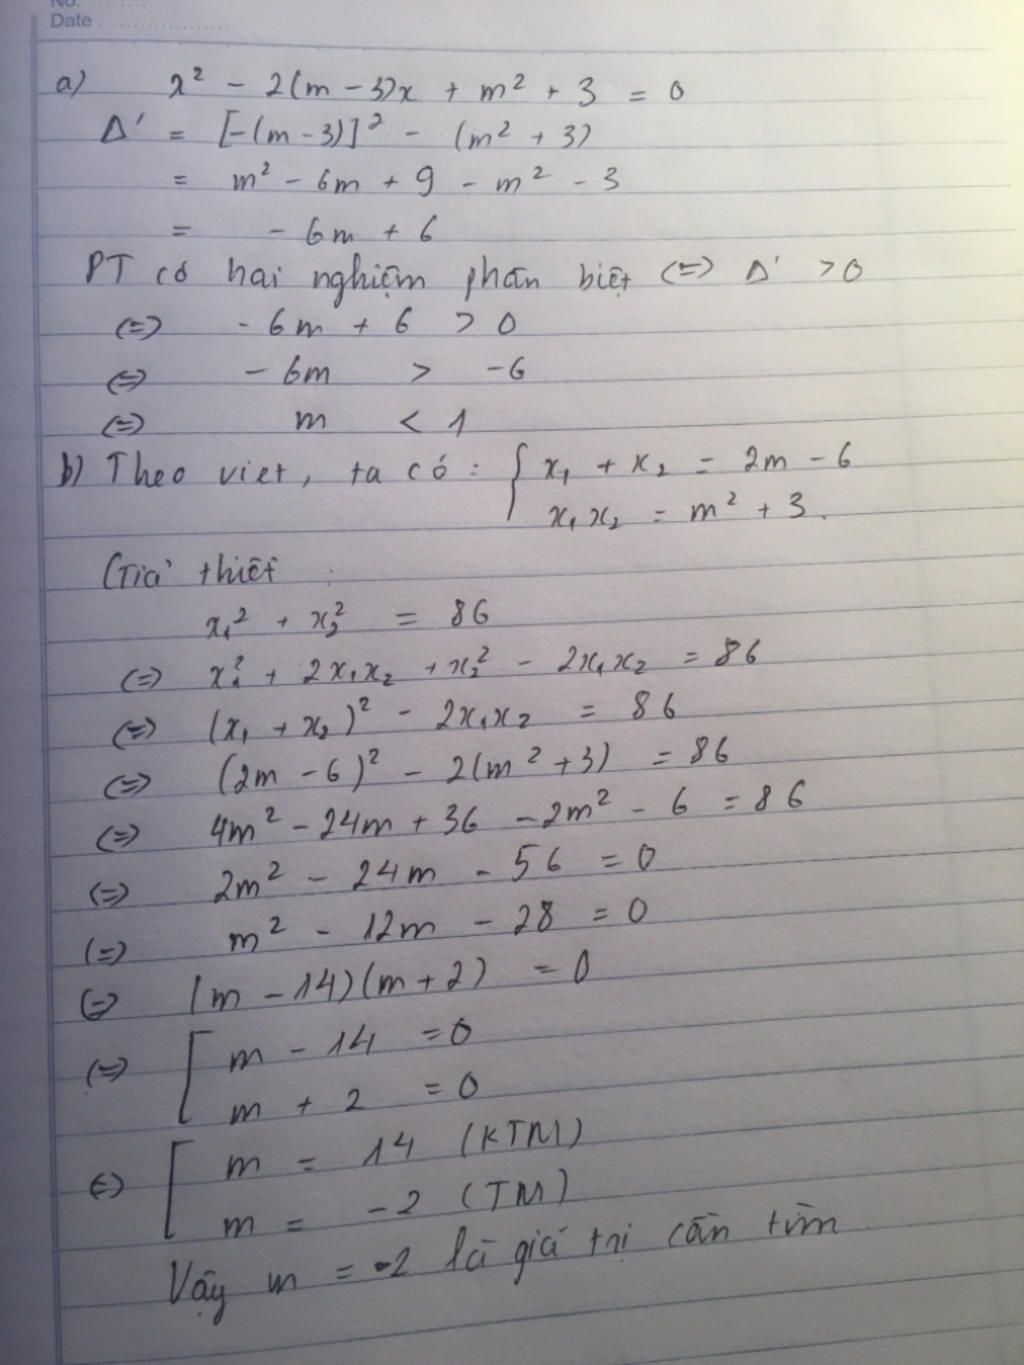 No. ........
Date ........
a) x² - 2(m - 3)x + m² + 3 = 0
Δ' = [-(m - 3)]² - (m² + 3)
= m² - 6m + 9 - m² - 3
= - 6m + 6
PT có hai nghiệm phân biệt (=) Δ' > 0
(=) - 6m + 6 > 0
(=) - 6m > -6
(=) m < 1
b) Theo viet, ta có : { x₁ + x₂ = 2m - 6
x₁x₂ = m² + 3.
Giả thiết :
x₁² + x₂² = 86
(=) x₁² + 2x₁x₂ + x₂² - 2x₁x₂ = 86
(=) (x₁ + x₂)² - 2x₁x₂ = 86
(=) (2m - 6)² - 2(m² + 3) = 86
(=) 4m² - 24m + 36 - 2m² - 6 = 86
(=) 2m² - 24m - 56 = 0
(=) m² - 12m - 28 = 0
(=) (m - 14)(m + 2) = 0
(=) [ m - 14 = 0
m + 2 = 0
(=) [ m = 14 (KTM)
m = -2 (TM)
Vậy m = -2 là giá trị cần tìm